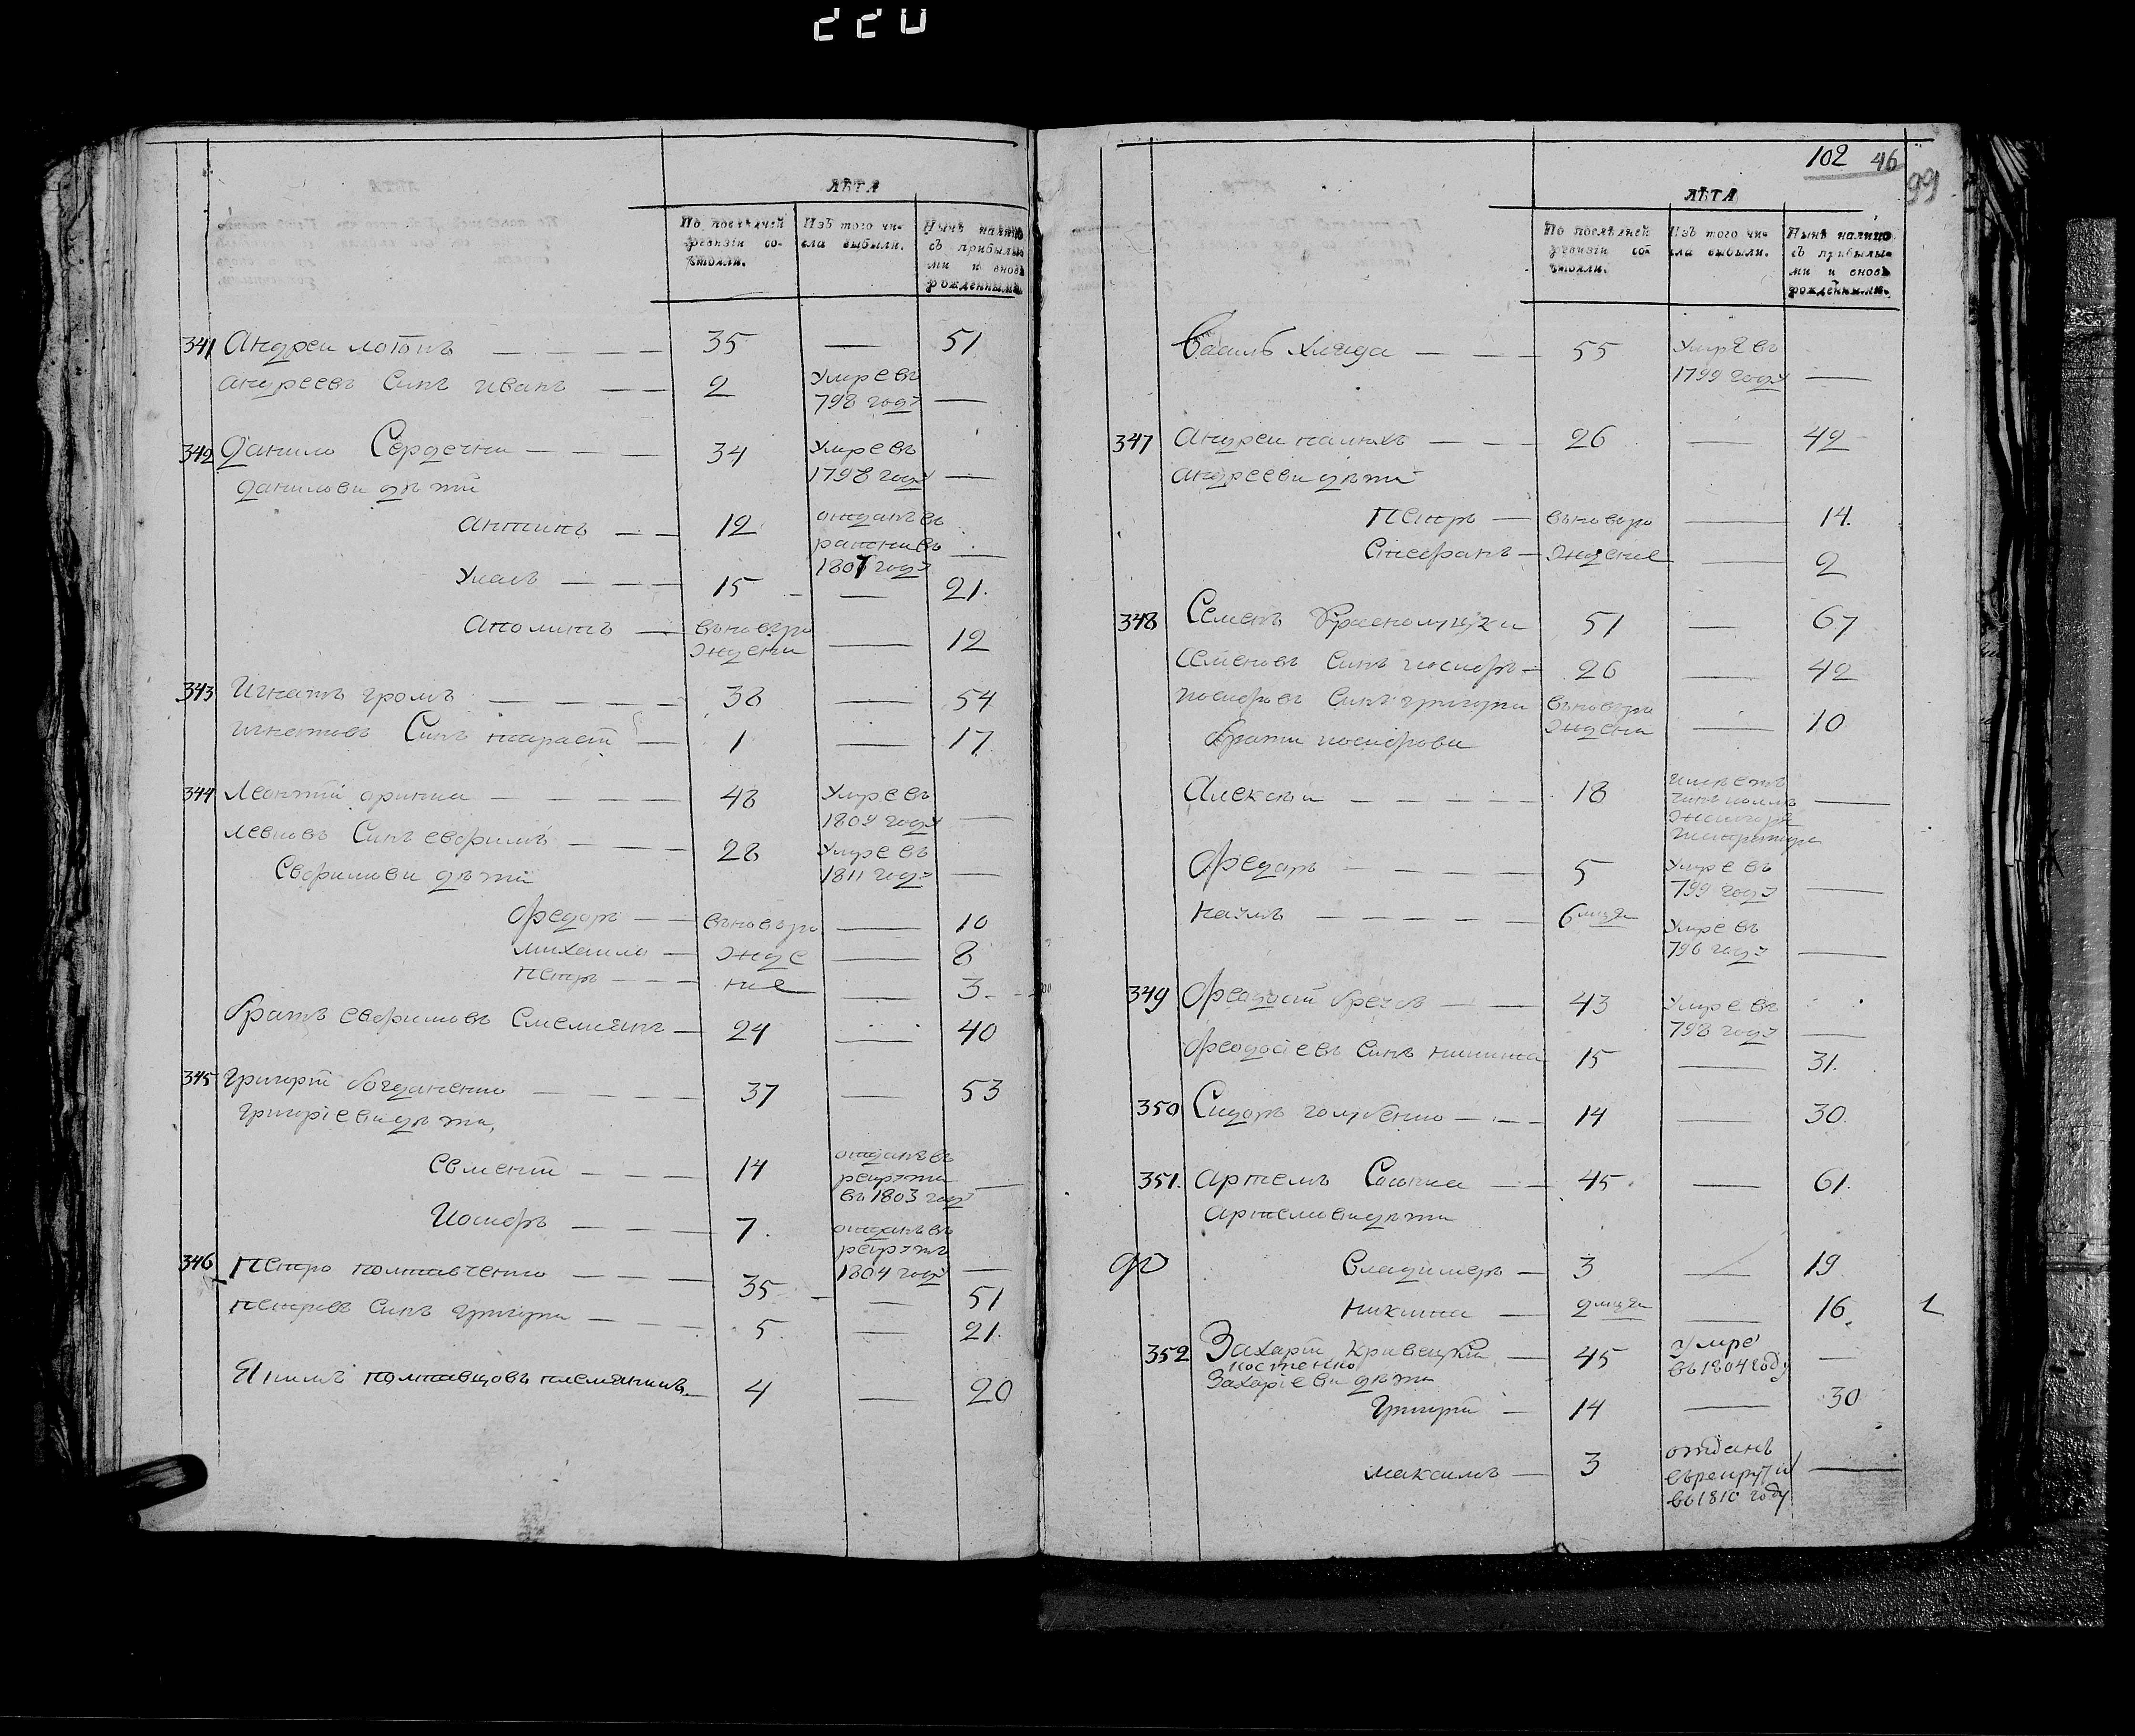 220
ЛѢТА
По послѣдней ревизіи состояли.
Изъ того числа выбыли.
Нынѣ налицо съ прибылыми и вновь рожденными.
341 Андреи — 35 — 51
андреевъ Синъ иванъ — 2 умре въ 798 году —
342 Данило Сердечни — 34 умре въ 1798 году —
данилови дѣти
антипъ — 12 отданъ въ 1807 году —
15 — 21.
въновъро ждени — 12
343 Игнатъ громъ — 38 — 54
игнатовъ Синъ тарасій — 1 — 17
344 Леонтій — 48 умре въ 1809 году —
Синъ евфимъ — 28 умре въ 1811 году —
Евфимови дѣти
Федоръ — въновъро — 10
михаило — жде — 8
петръ — ние — 3
братъ евфимовъ Емелиянъ — 24 — 40
345 Григорій богданенко — 37 — 53
григоріеви дѣти,
Семенъ — 14 отданъ въ рекруты въ 1803 году —
Иосифъ — 7. отданъ въ рекруты 1804 году —
346 Петро полтавченко — 35 — 51
петровъ Синъ григори — 5. — 21.
Якимъ полтавцовъ племянникъ — 4 — 20
102 46
99
ЛѢТА
По послѣдней ревизіи состояли.
Изъ того числа выбыли.
Нынѣ налицо съ прибылыми и вновь рожденными.
Василь — 55 умре въ 1799 году —
347 андреи — 26 — 42
андрееви дѣти
Петръ — въновъро — 14.
Стефанъ — ждение — 2
348 Семенъ — 51 — 67
Семеновъ Синъ иосифъ — 26 — 42
иосифовъ Синъ григори въновъро ждени — 10
брати иосифови
Алексѣи — 18 имѣетъ чинъ —
Федоръ — 5 умре въ 799 году —
наумъ — 6 мця умре въ 796 году —
349 Феодосій — 43 умре въ 798 году —
Феодосіевъ Синъ никита 15 — 31.
350 Сидоръ голубенко — 14 — 30.
351. Артемъ — 45. — 61.
артемови дѣти
Владимеръ — 3 — 19
никита — 2 мця — 16. 1
352 Захарій Кривецкій — 45 умре въ 1804 году —
костенко
Захаріеви дѣти
Григорій — 14 — 30
максимъ — 3 отданъ въ рекруты въ 1810 году —